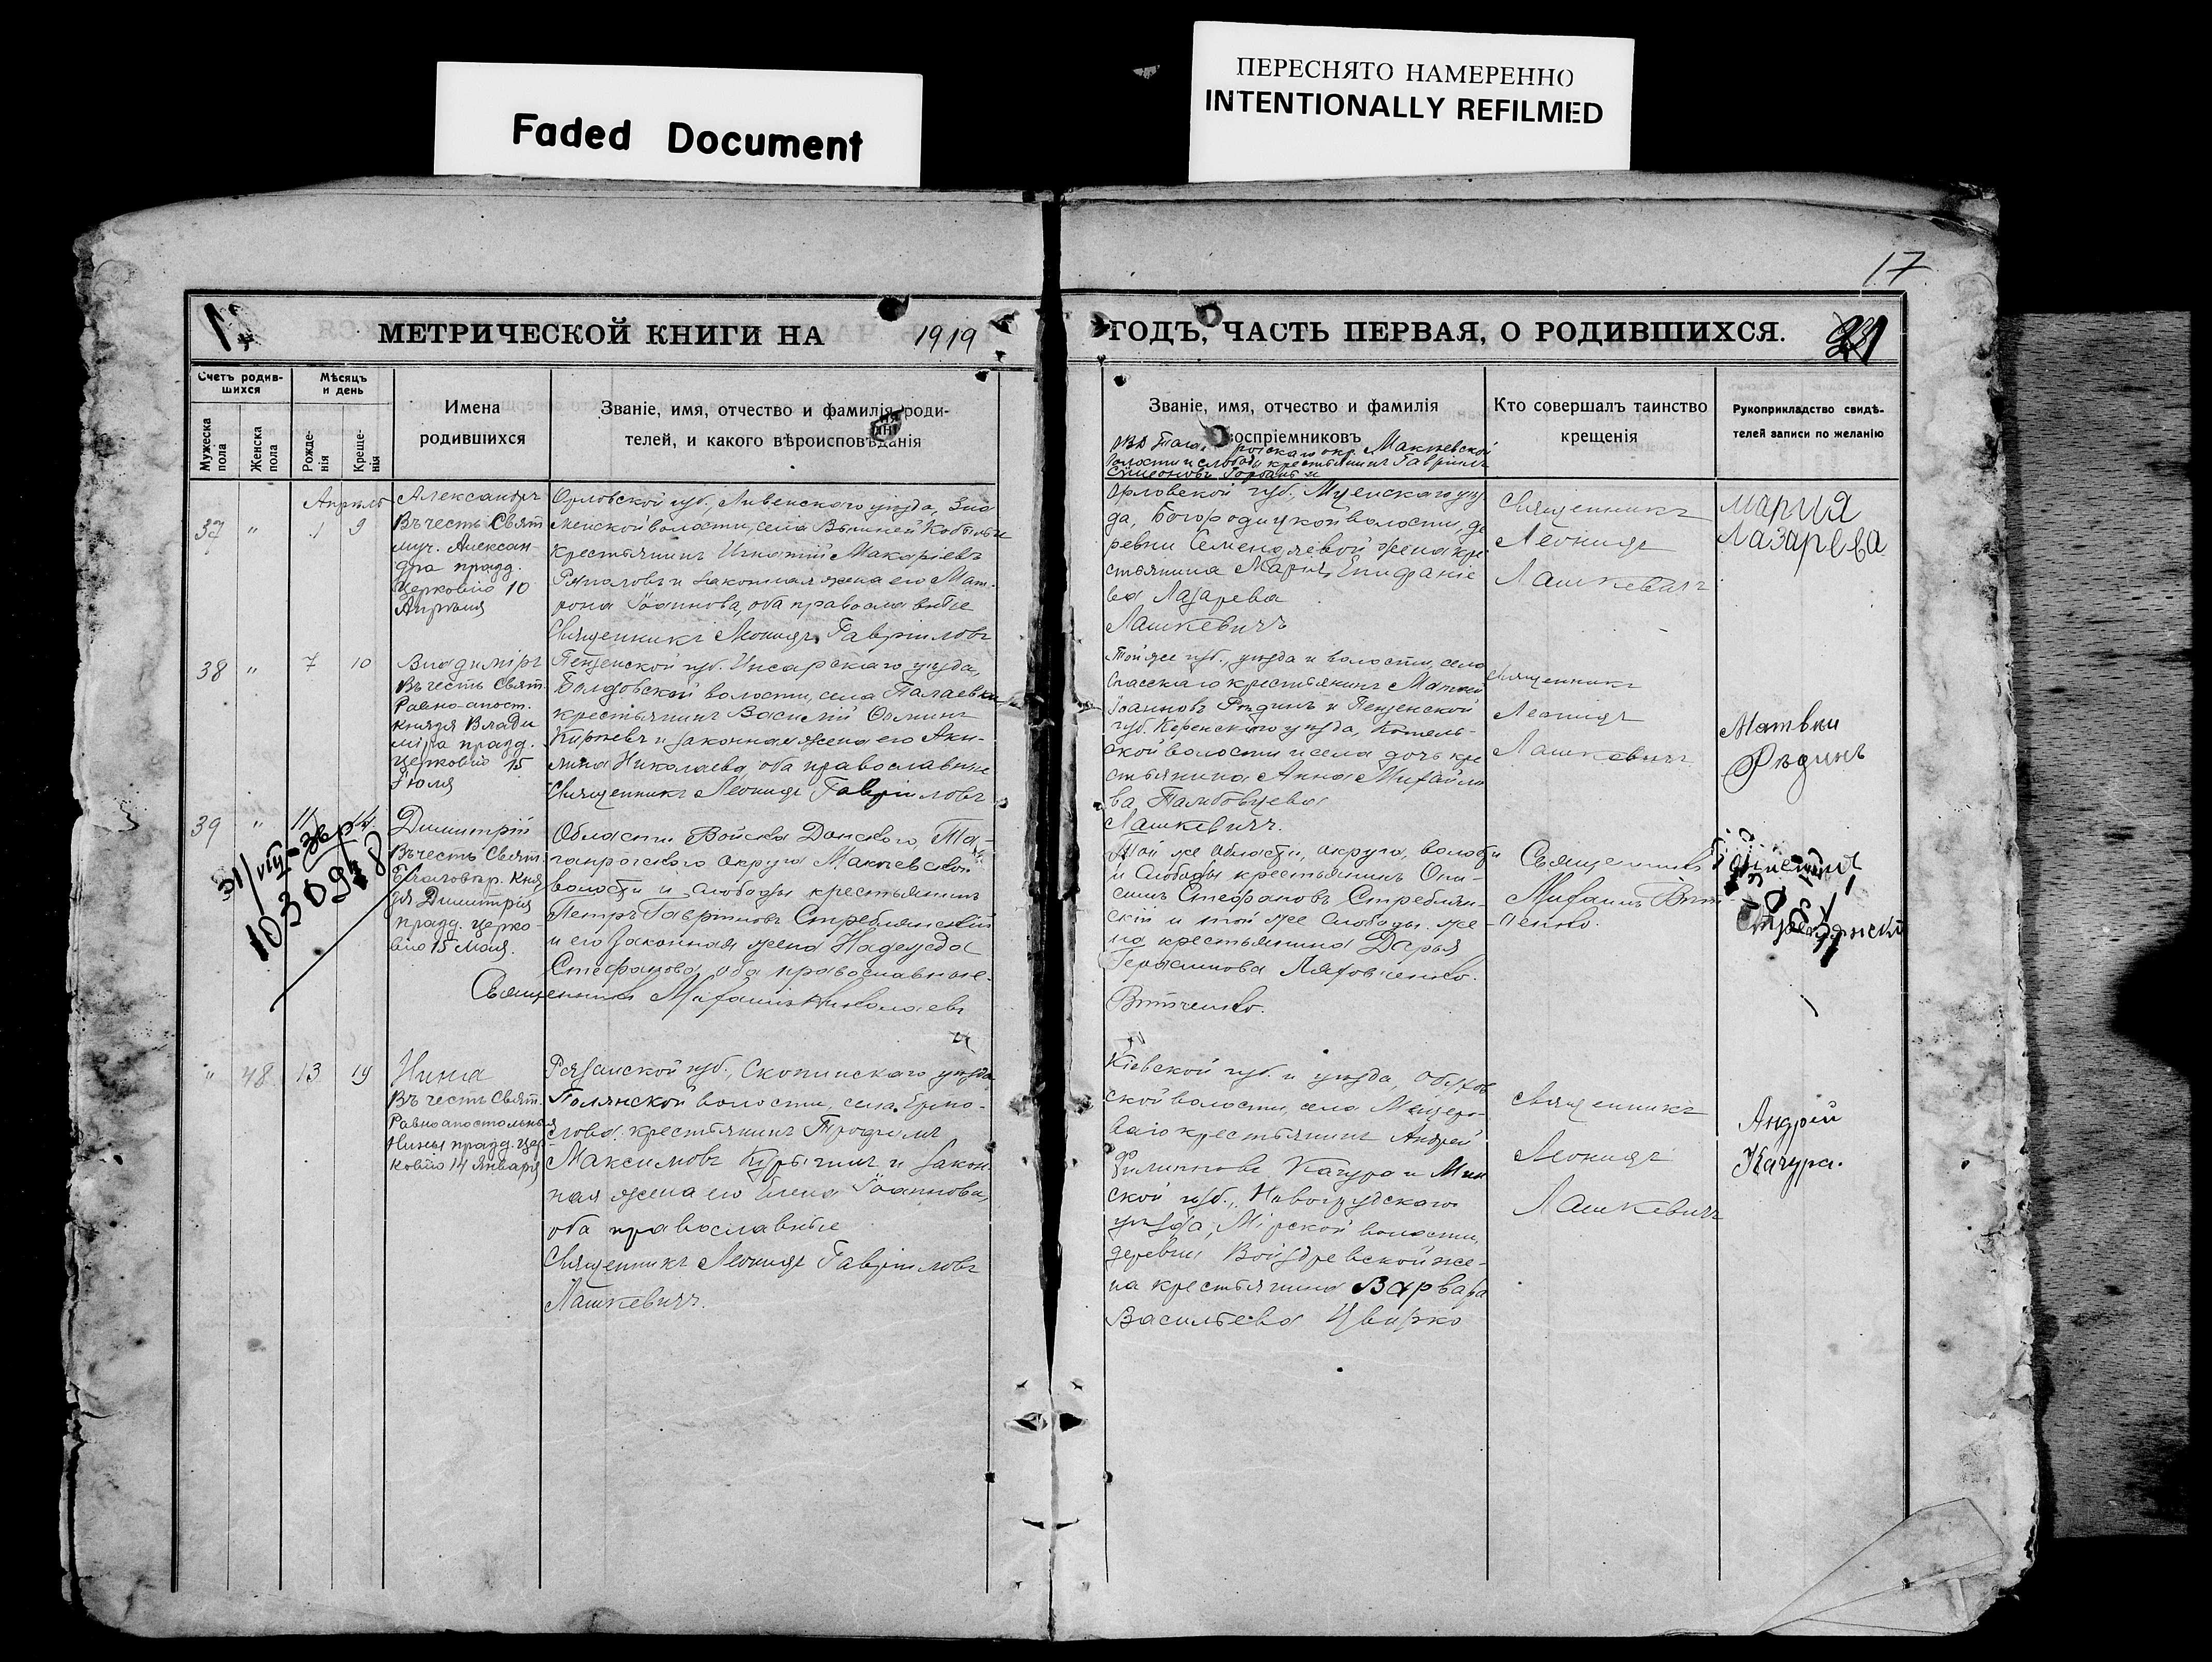 Faded Document
ПЕРЕСНЯТО НАМЕРЕННО
INTENTIONALLY REFILMED
17
МЕТРИЧЕСКОЙ КНИГИ НА 1919
ГОДЪ, ЧАСТЬ ПЕРВАЯ, О РОДИВШИХСЯ.
Счетъ родив-
шихся
Мѣсяцъ
и день
Мужеска
пола
Женска
пола
Рожде-
нія
Креще-
нія
Имена
родившихся
Званіе, имя, отчество и фамилія роди-
телей, и какого вѣроисповѣданія
Званіе, имя, отчество и фамилія
воспріемниковъ
Кто совершалъ таинство
крещенія
Рукоприкладство свидѣ-
телей записи по желанію
окр. Макѣевской
волости и слободы крестьянинъ Гавріилъ
Симеоновъ Горбань и
Апрѣль
37 " 1 9
Александръ
Въ честь Свят.
муч. Алексан-
дра празд.
Церковію 10
Апрѣля
Орловской губ., Ливенскаго уѣзда, Зна
менской волости, села
крестьянинъ Игнатій Макаріевъ
и законная жена его Мат-
рона Іоаннова, оба православные
Священникъ Леонидъ Гавріиловъ
Орловской губ. Мценскаго уѣз
да, Богородицкой волости, де
ревни жена кре
стьянина Марія Епифаніе
ва Лазарева
Лашкевичъ
Священникъ
Леонидъ
Лашкевичъ
Мария
Лазарева
38 " 7 10
Владиміръ
Въ честь Свят.
Равно-апост.
Князя Влади
міра празд.
Церковію 15
Іюля
Пензенской губ. Инсарскаго уѣзда,
Болдовской волости, села Палаевки
крестьянинъ Василій
и законная жена его Аки-
лина Николаева, оба православные
Священникъ Леонидъ Гавріиловъ
Той же губ., уѣзда и волости, села
Спасскаго крестьянинъ Матвей
Іоанновъ Рѣдинъ и Пензенской
губ. Керенскаго уѣзда, Котель-
ской волости и села дочь кре
стьянина Анна Михайло
ва
Лашкевичъ.
Священникъ
Леонидъ
Лашкевичъ
Матвеи
Рѣдинъ
39 " 11 14
103098
Димитрій
Въ честь Свят.
Благовѣр. Кня
зя Димитрія
празд. церко-
вію 15 Мая.
Области Войска Донского, Та-
ганрогского округа Макѣевской
волости и слободы крестьянинъ
Петръ Гавріиловъ Стреблянскій
и его законная жена Надежда
Стефанова, оба православные.
Священникъ Михаилъ Николаевъ
Той же Области, округа, волости
и слободы крестьянинъ Они-
симъ Стефановъ Стреблян-
скій и той же слободы же-
на крестьянина Дарья
Герасимова
Витченко.
Священникъ
Михаилъ Вит
ченко.
" 48 13 19
Нина
Въ честь Свят.
Равноапостольныя
Нины празд. цер
ковію 14 Января
Рязанской губ., Скопинскаго уѣзда
Полянской волости, села Ермо-
лова крестьянинъ Трофимъ
Максимовъ и закон
ная жена его Елена Іоаннова,
оба православные
Священникъ Леонидъ Гавріиловъ
Лашкевичъ.
Кіевской губ. и уѣзда, Обухов
ской волости, села
крестьянинъ Андрей
Филипповъ Качура и Мин
ской губ., Новогрудскаго
уѣзда, Мірской волости,
деревни же-
на крестьянина Варвара
Васильева Цвирко
Священникъ
Леонидъ
Лашкевичъ
Андрей
Качура.